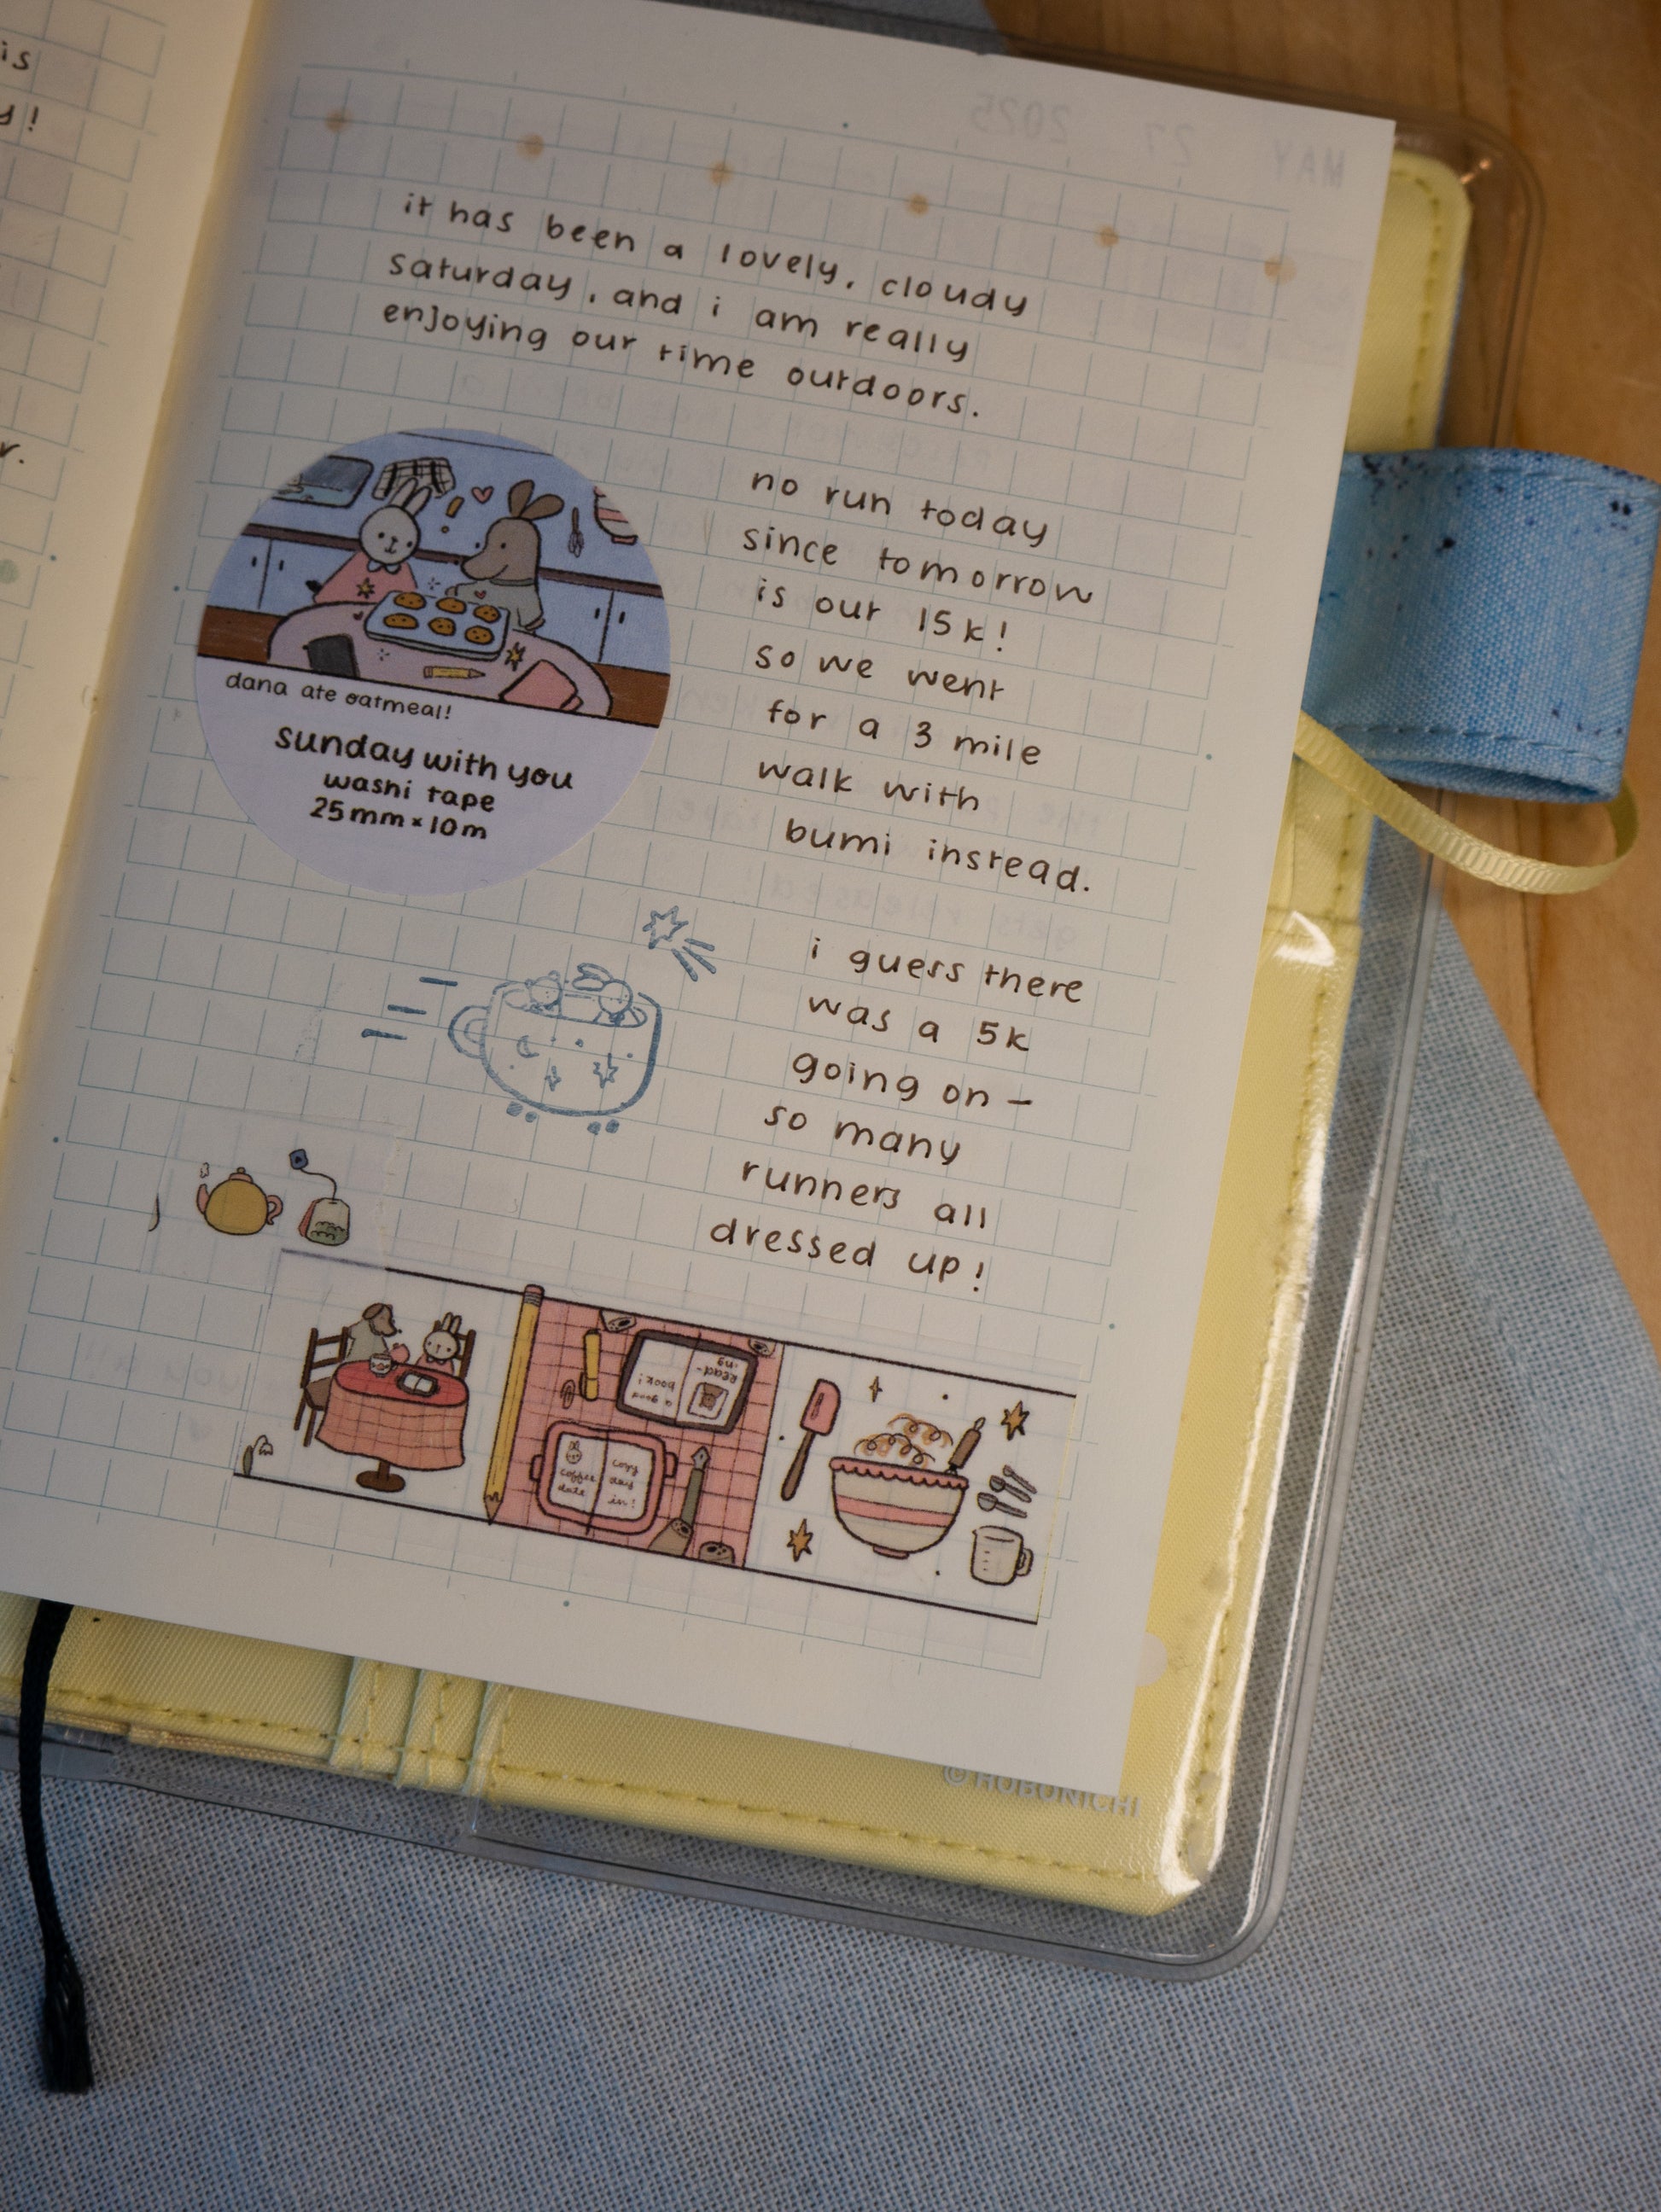 is
y!
r.
MAY 27 2025
it has been a lovely, cloudy
saturday, and i am really
enjoying our time outdoors.
no run today
since tomorrow
is our 15k!
so we went
for a 3 mile
walk with
bumi instead.
dana ate oatmeal!
sunday with you
washi tape
25mm × 10m
i guess there
was a 5k
going on –
so many
runners all
dressed up!
read-
ing
a good
book!
coffee
date
cozy
day
in!
© HOBONICHI